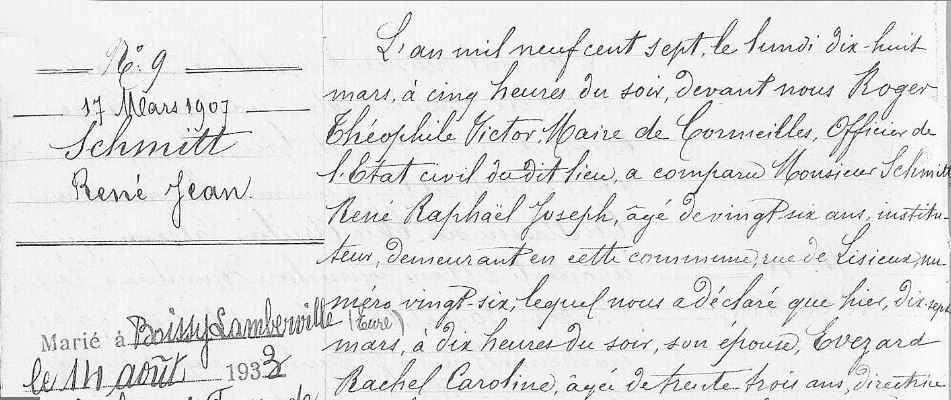 N° 9
17 Mars 1907
Schmitt
René Jean
Marié à Boissy Lamberville (Eure)
le 14 août 1933
L'an mil neuf cent sept, le lundi dix-huit
mars, à cinq heures du soir, devant nous Roger
Théophile Victor, Maire de Cormeilles, Officier de
l'Etat civil dudit lieu, a comparu Monsieur Schmitt
René Raphaël Joseph, âgé de vingt six ans, institu-
teur, demeurant en cette commune, rue de Lisieux, nu-
méro vingt-six; lequel nous a déclaré que hier, dix-sept
mars, à dix heures du soir, son épouse, Evezard
Rachel Caroline, âgée de trente trois ans, directrice